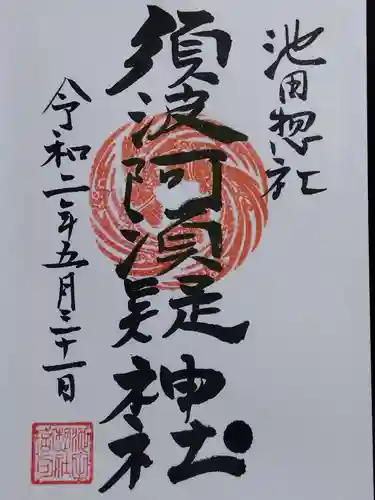 池田惣社
須波阿湏疑神社
令和二年五月三十一日